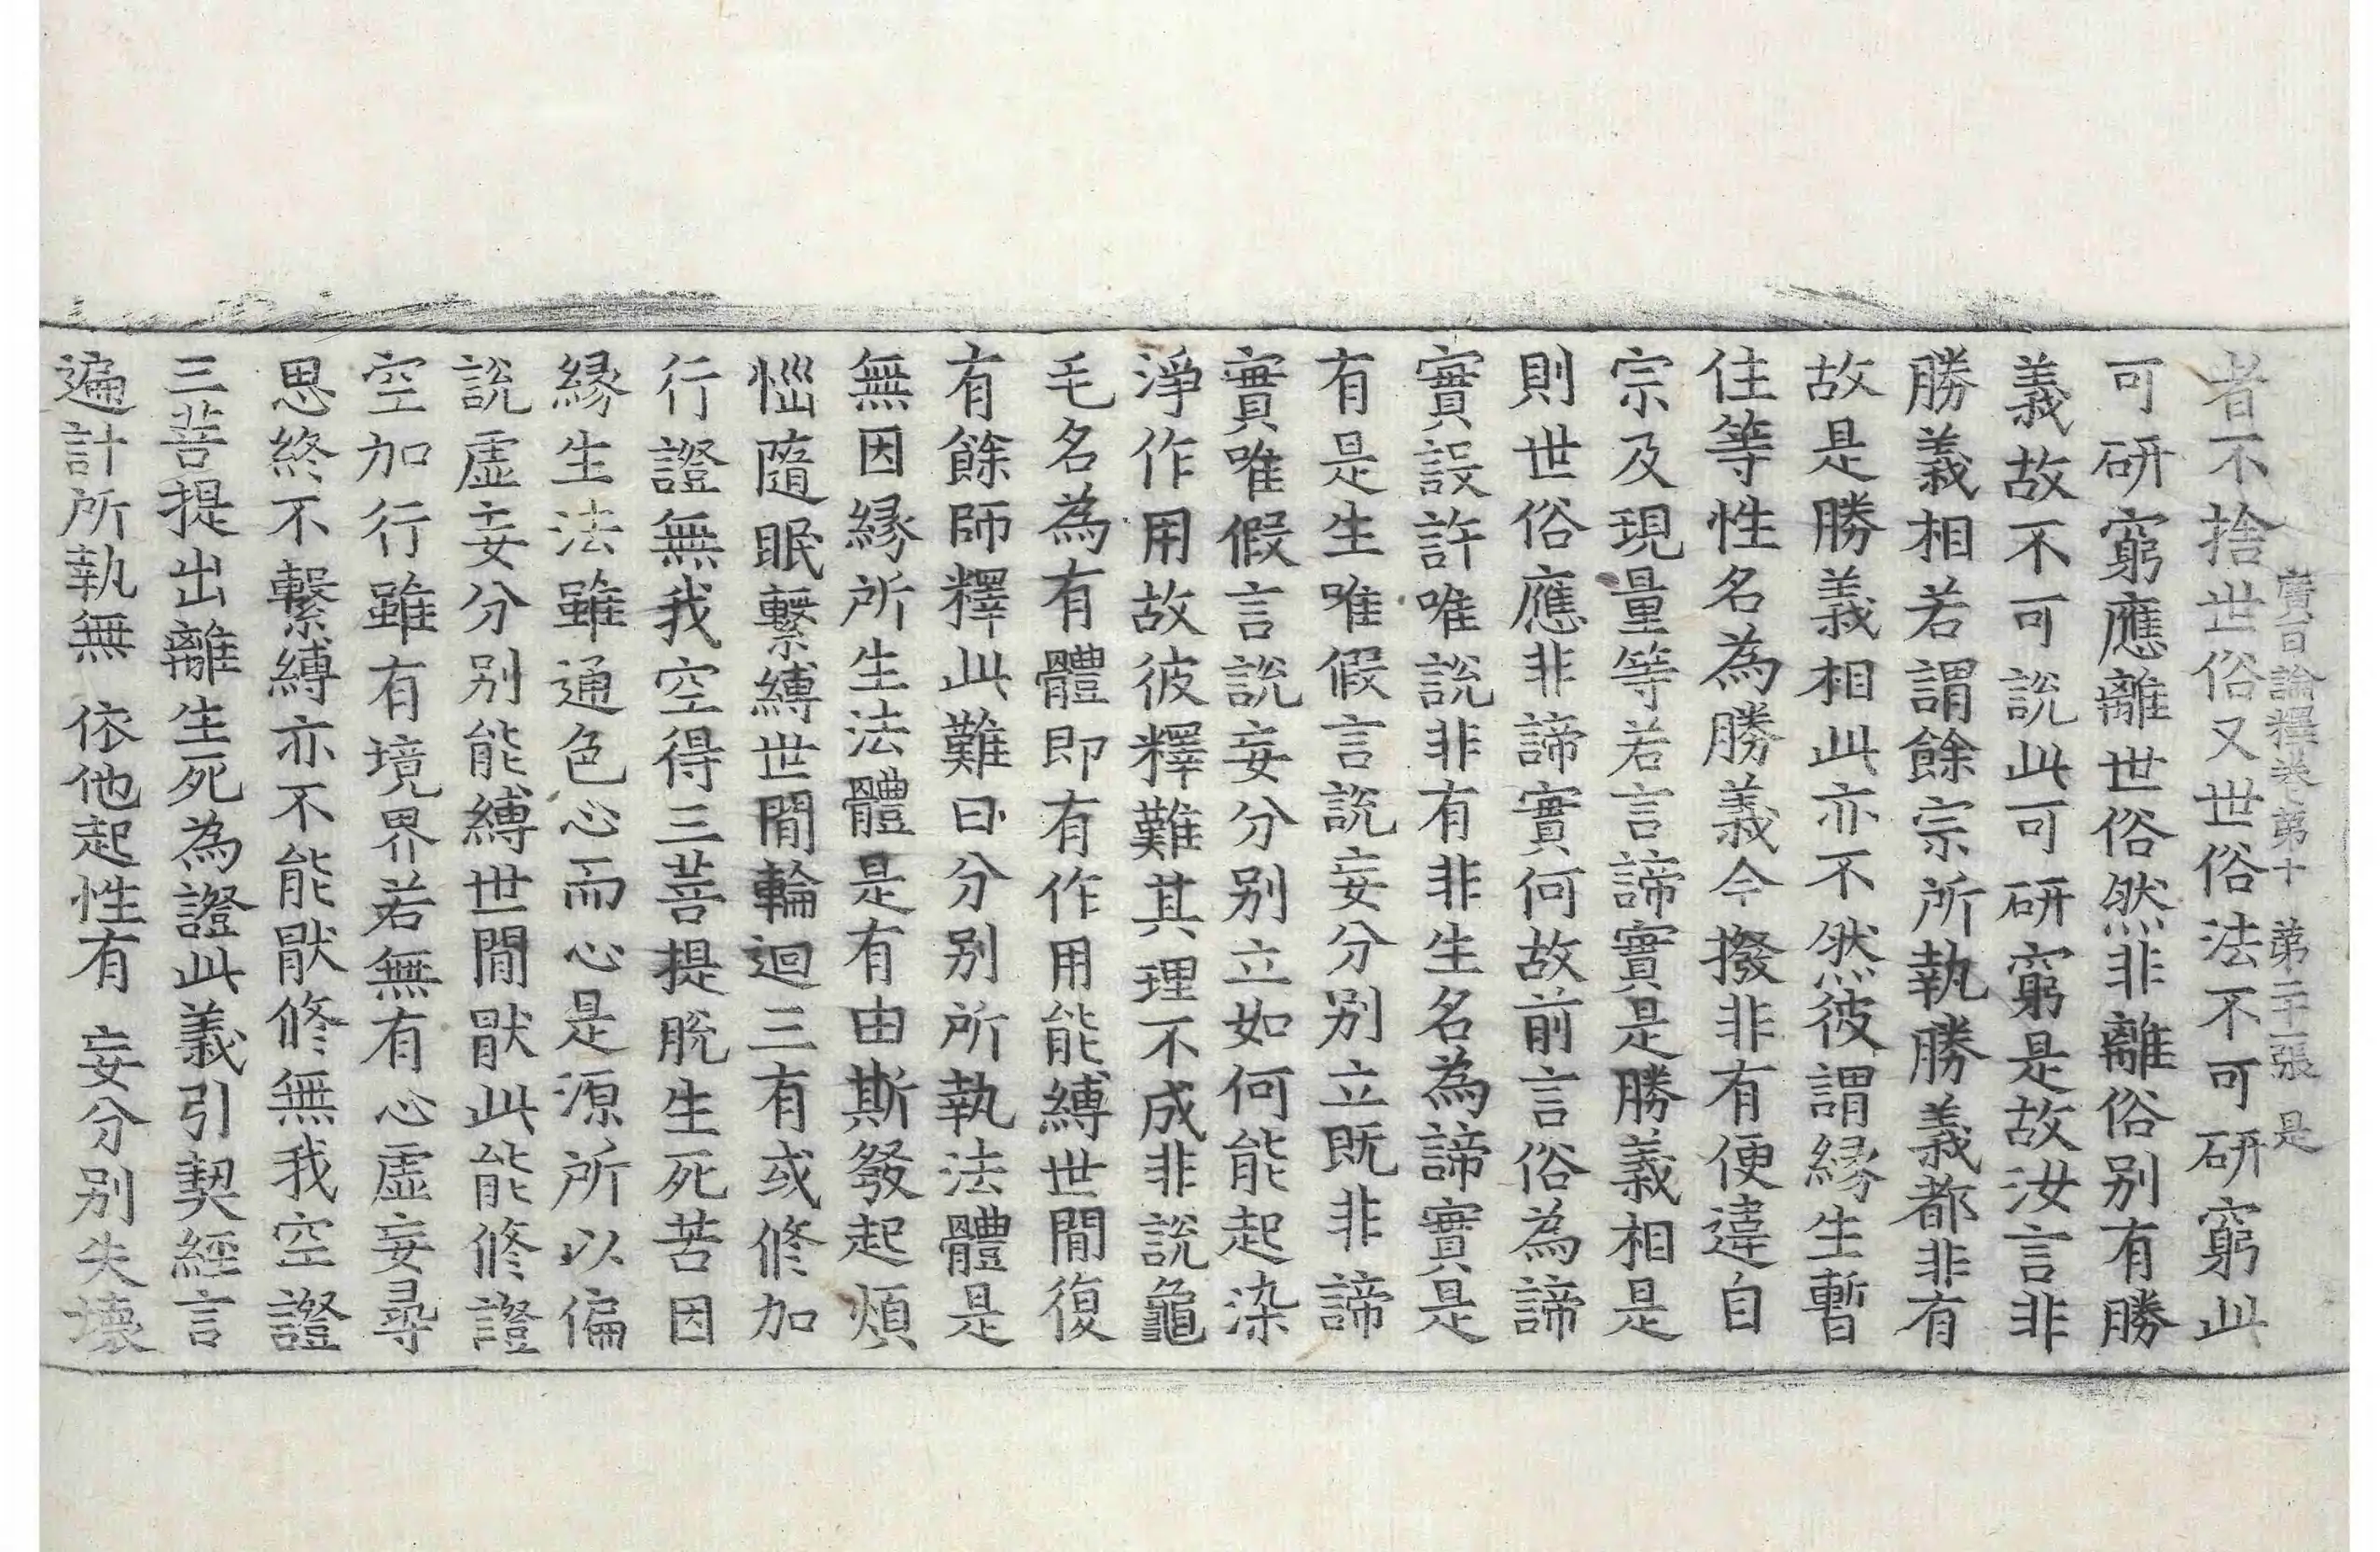 廣百論釋卷第十 第二十一張 是
者不捨世俗又世俗法不可研窮此
可研窮應離世俗然非離俗别有勝
義故不可説此可研窮是故汝言非
勝義相若謂餘宗所執勝義都非有
故是勝義相此亦不然彼謂縁生暫
住等性名為勝義今撥非有便違自
宗及現量等若言諦實是勝義相是
則世俗應非諦實何故前言俗為諦
實設許唯説非有非生名為諦實是
有是生唯假言説妄分别立既非諦
實唯假言説妄分别立如何能起染
淨作用故彼釋難其理不成非説龜
毛名為有體即有作用能縛世間復
有餘師釋此難曰分别所執法體是
無因縁所生法體是有由斯發起煩
惱隨眠繫縛世間輪迴三有或修加
行證無我空得三菩提脱生死苦因
縁生法雖通色心而心是源所以偏
説虛妄分别能縛世間猒此能修證
空加行雖有境界若無有心虛妄尋
思終不繫縛亦不能猒修無我空證
三菩提出離生死為證此義引契經言
遍計所執無 依他起性有 妄分别失壞